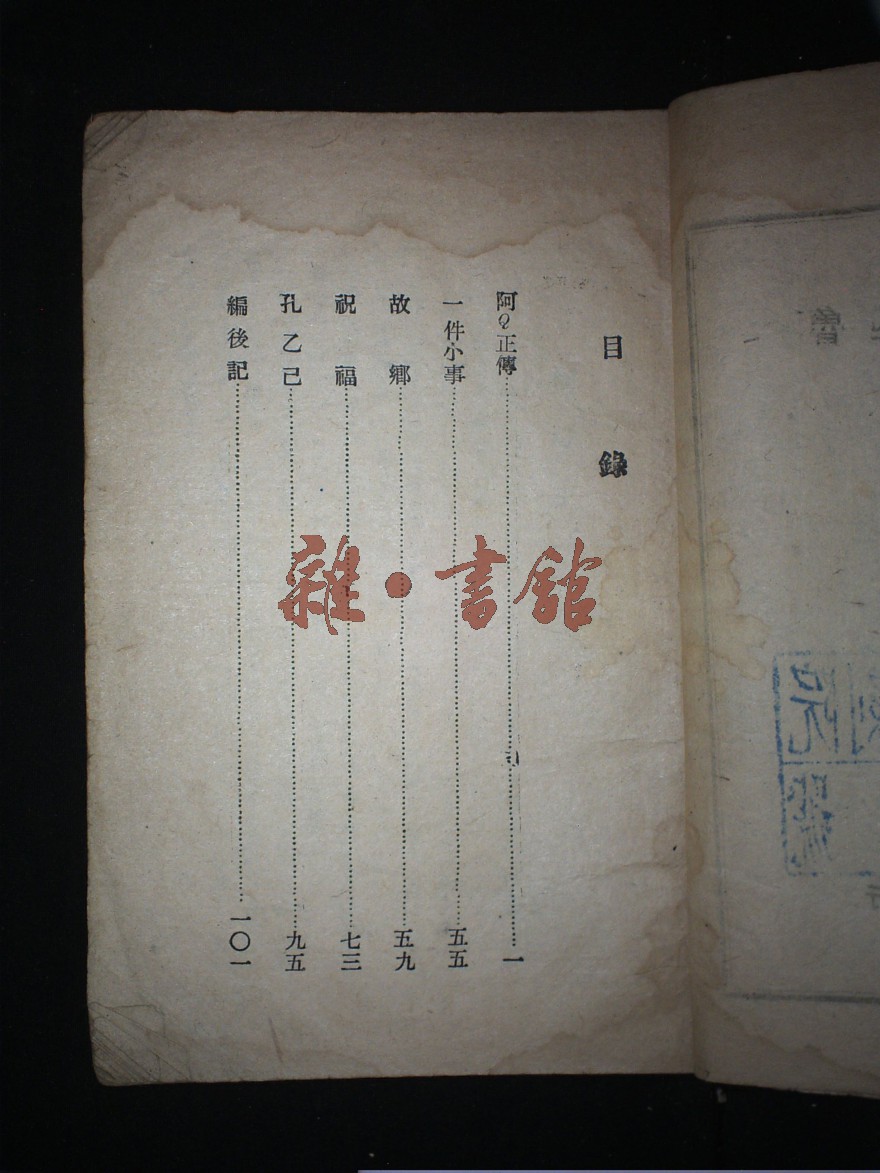 目錄
阿Q正傳……一
一件小事……五五
故鄉……五九
祝福……七三
孔乙己……九五
編後記……一〇一
雜·書舘